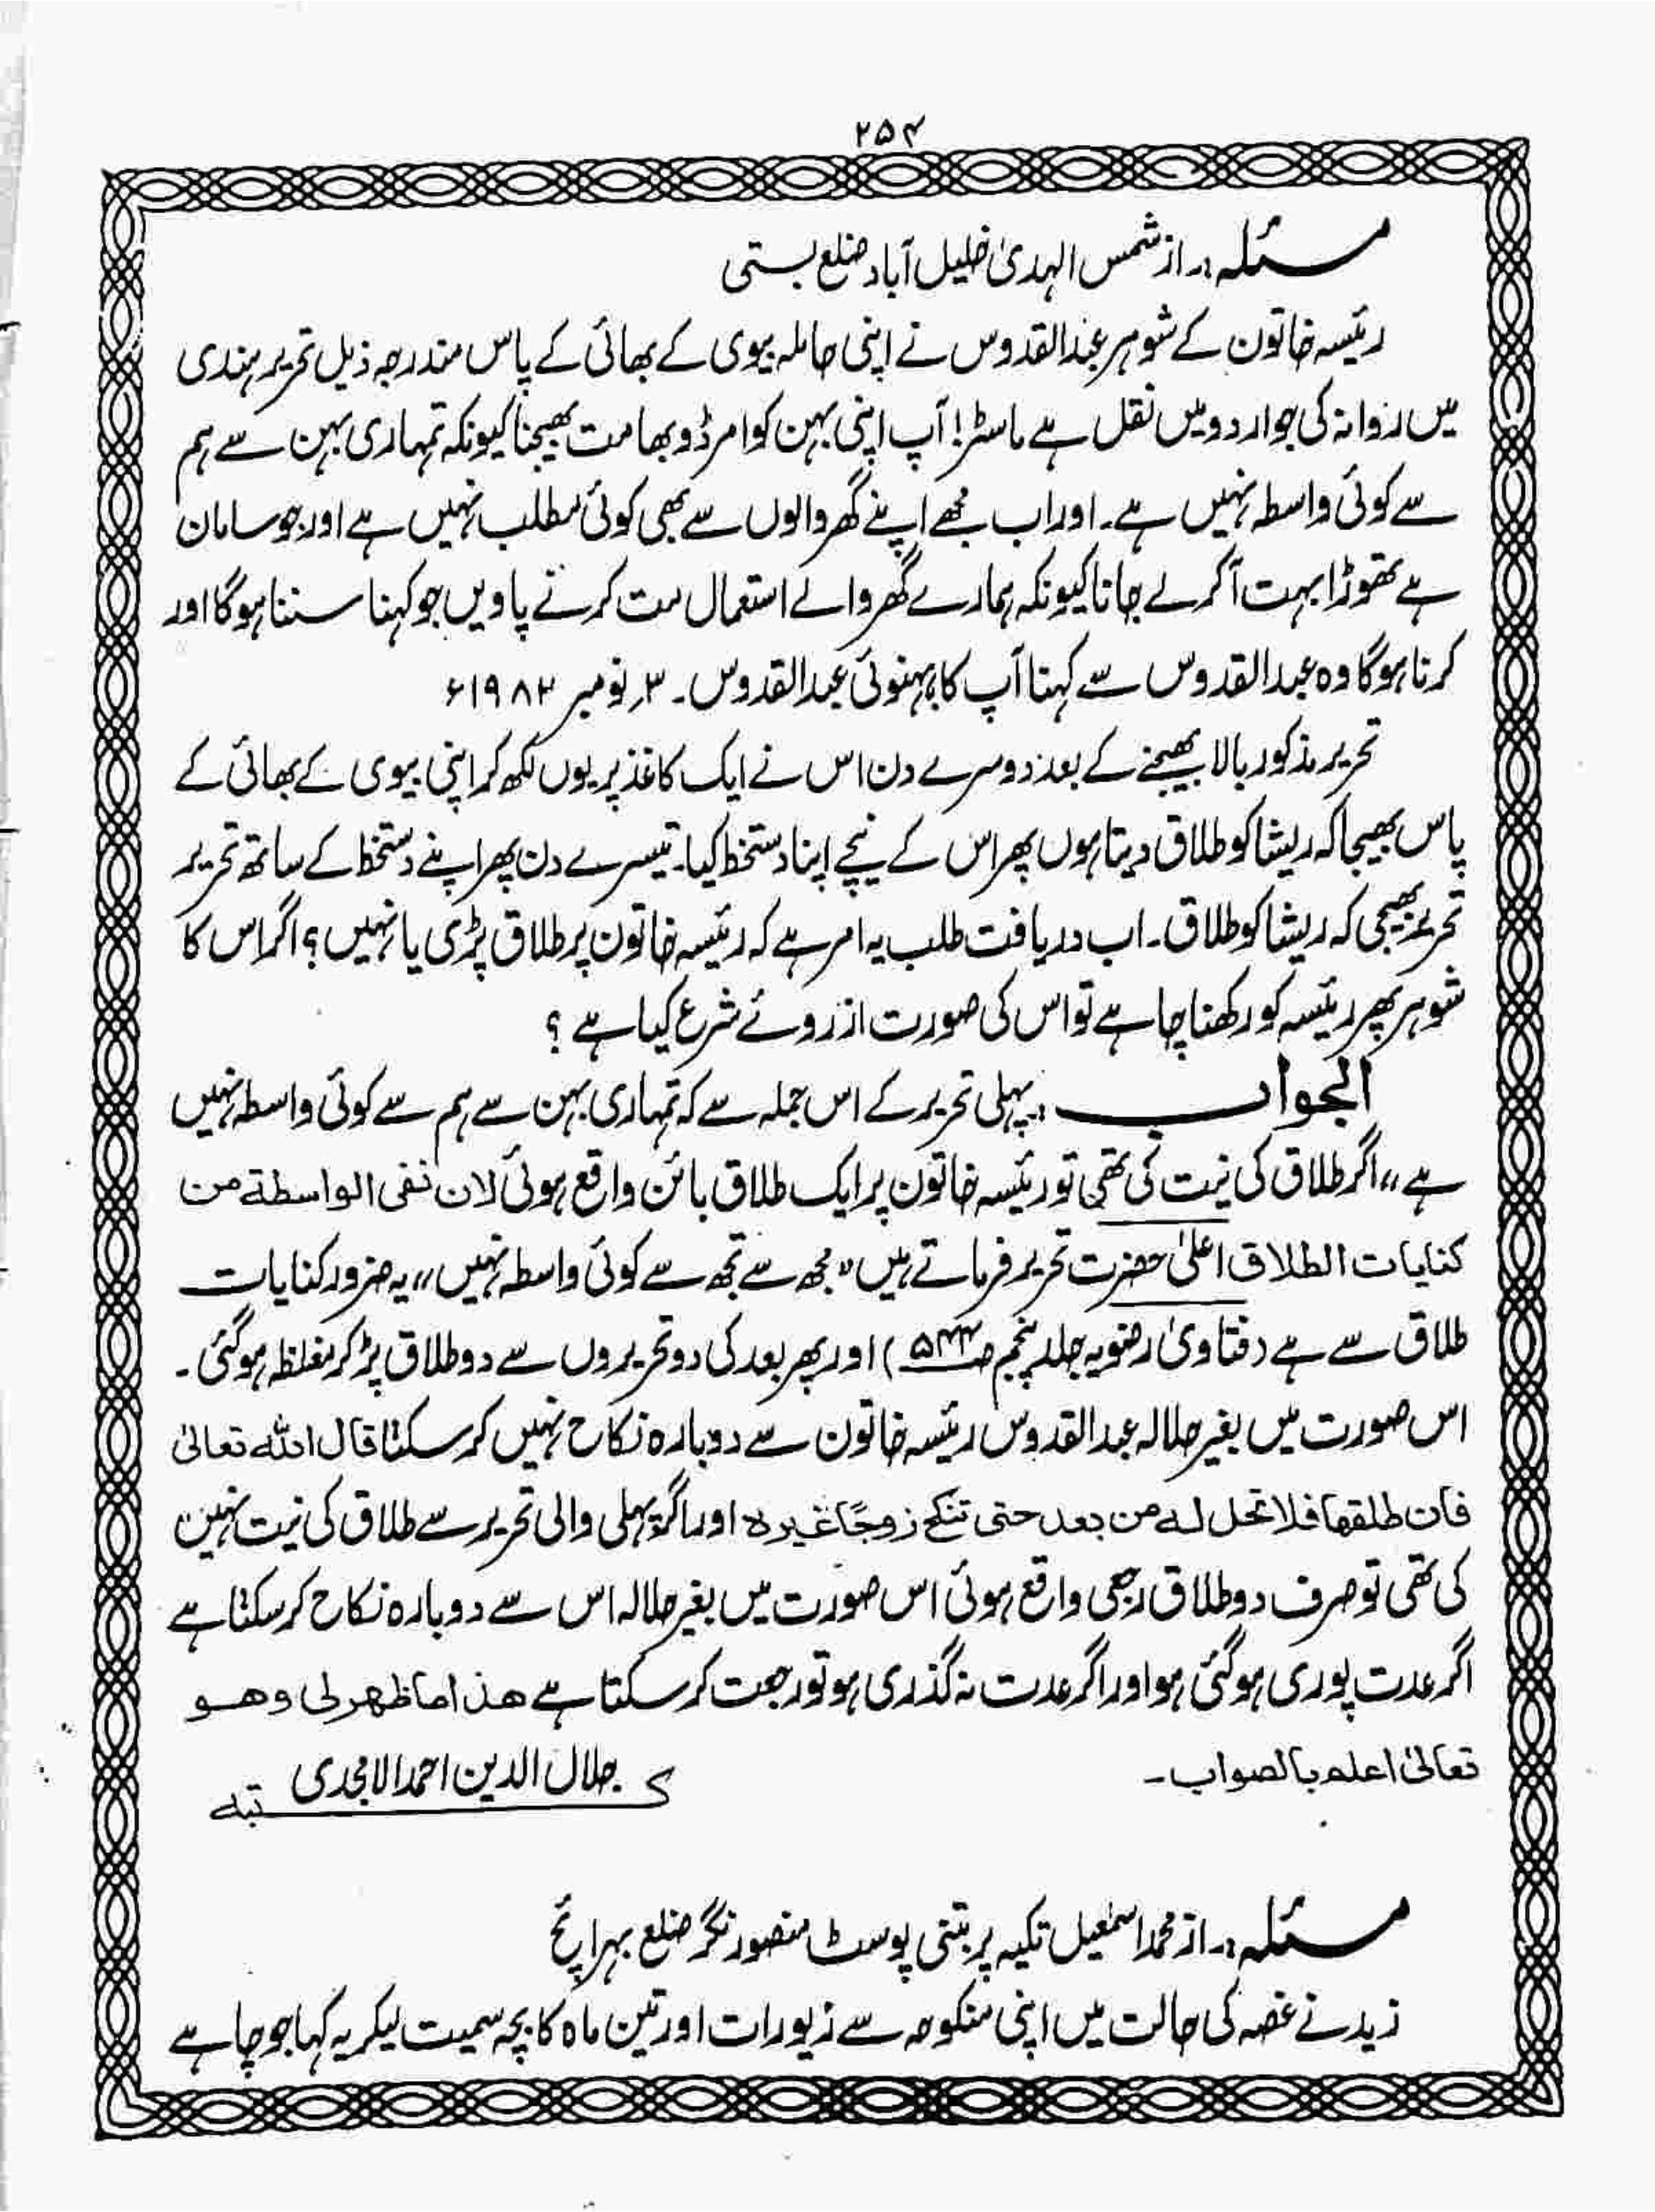 ۲۵۴
مسئلہ:۔ از شمس الہدیٰ خلیل آباد ضلع بستی
رئیسہ خاتون کے شوہر عبدالقدوس نے اپنی حاملہ بیوی کے بھائی کے پاس مندرجہ ذیل تحریر ہندی
میں روانہ کی جو اردو میں نقل ہے ماسٹر! آپ اپنی بہن کو امرڈوبھا مت بھیجنا کیونکہ تمہاری بہن سے ہم
سے کوئی واسطہ نہیں ہے۔ اور اب مجھے اپنے گھر والوں سے بھی کوئی مطلب نہیں ہے اور جو سامان
ہے تھوڑا بہت آکر لے جانا کیونکہ ہمارے گھر والے استعمال مت کرنے پاویں جو کہنا سننا ہوگا اور
کرنا ہوگا وہ عبدالقدوس سے کہنا آپ کا بہنوئی عبدالقدوس۔ ۳ نومبر ۱۹۸۳ء
تحریر مذکور بالا بھیجنے کے بعد دوسرے دن اس نے ایک کاغذ پر یوں لکھ کر اپنی بیوی کے بھائی کے
پاس بھیجا کہ ریشا کو طلاق دیتا ہوں پھر اس کے نیچے اپنا دستخط کیا۔ تیسرے دن پھر اپنے دستخط کے ساتھ تحریر
تحریر بھیجی کہ ریشا کو طلاق۔ اب دریافت طلب یہ امر ہے کہ رئیسہ خاتون پر طلاق پڑی یا نہیں؟ اگر اس کا
شوہر پھر رئیسہ کو رکھنا چاہے تو اس کی صورت از روئے شرع کیا ہے ؟
الجواب:۔ پہلی تحریر کے اس جملہ سے کہ تمہاری بہن سے ہم سے کوئی واسطہ نہیں
ہے،، اگر طلاق کی نیت کی تھی تو رئیسہ خاتون پر ایک طلاق بائن واقع ہوئی لان نفی الواسطة من
کنایات الطلاق اعلیٰ حضرت تحریر فرماتے ہیں "مجھ سے تجھ سے کوئی واسطہ نہیں،، یہ ضرور کنایات
طلاق سے ہے (فتاویٰ رضویہ جلد پنجم ص۵۴۴) اور پھر بعد کی دو تحریروں سے دو طلاق پڑ کر مغلظہ ہوگئی۔
اس صورت میں بغیر حلالہ عبدالقدوس رئیسہ خاتون سے دوبارہ نکاح نہیں کرسکتا قال اللہ تعالیٰ
فان طلقها فلا تحل له من بعد حتی تنکح زوجًا غیره اور اگر پہلی والی تحریر سے طلاق کی نیت نہیں
کی تھی تو صرف دو طلاق رجعی واقع ہوئی اس صورت میں بغیر حلالہ اس سے دوبارہ نکاح کرسکتا ہے
اگر عدت پوری ہوگئی ہو اور اگر عدت نہ گذری ہو تو رجعت کرسکتا ہے هذا ما ظهر لی وهو
تعالیٰ اعلم بالصواب۔
کتبہ جلال الدین احمد الامجدی
مسئلہ:۔ از محمد اسمٰعیل تکیہ پربتنی پوسٹ منصور نگر ضلع بہرائچ
زید نے غصہ کی حالت میں اپنی منکوحہ سے زیورات اور تین ماہ کا بچہ سمیت لیکر یہ کہا جو چاہے